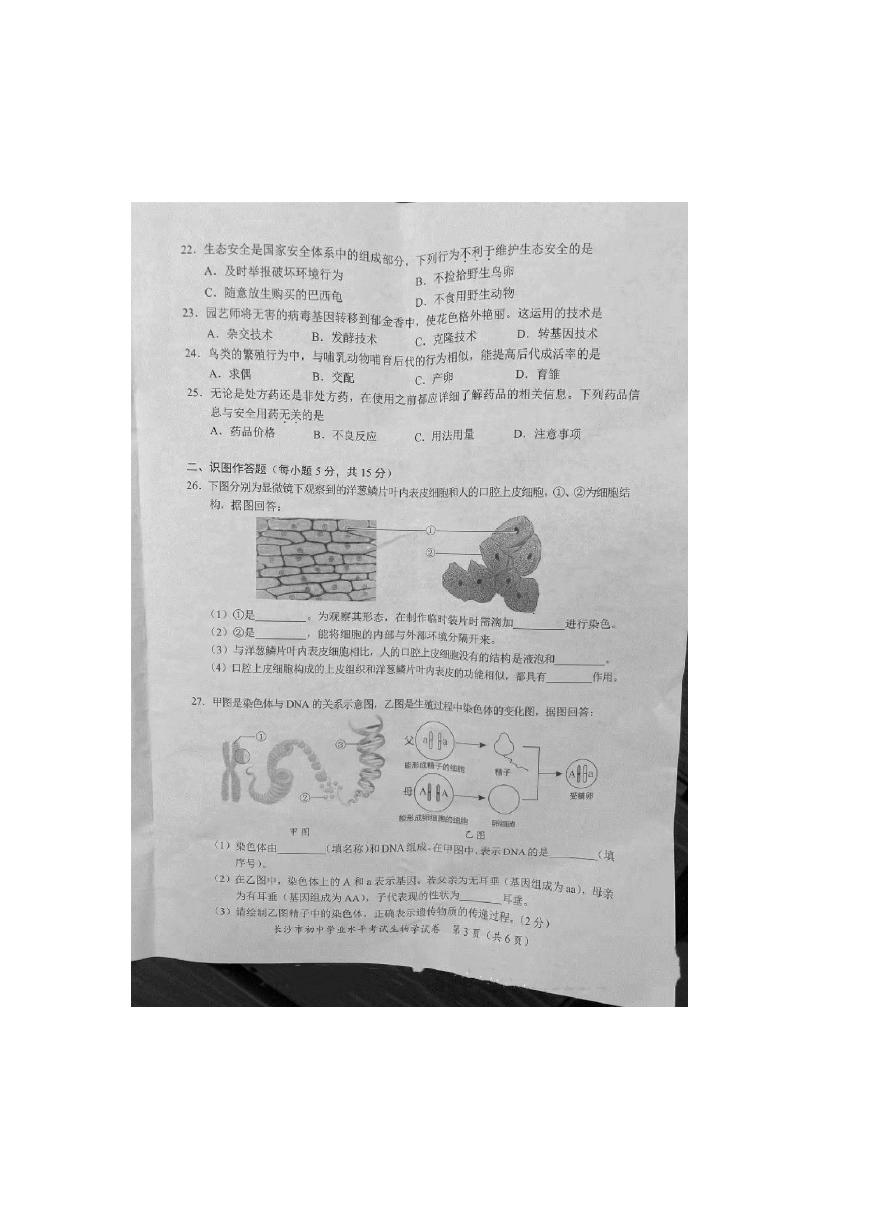 22. 生态安全是国家安全体系中的组成部分，下列行为不利于维护生态安全的是
A. 及时举报破坏环境行为 B. 不捡拾野生鸟卵
C. 随意放生购买的巴西龟 D. 不食用野生动物
23. 园艺师将无害的病毒基因转移到郁金香中，使花色格外艳丽。这运用的技术是
A. 杂交技术 B. 发酵技术 C. 克隆技术 D. 转基因技术
24. 鸟类的繁殖行为中，与哺乳动物哺育后代的行为相似，能提高后代成活率的是
A. 求偶 B. 交配 C. 产卵 D. 育雏
25. 无论是处方药还是非处方药，在使用之前都应详细了解药品的相关信息。下列药品信
息与安全用药无关的是
A. 药品价格 B. 不良反应 C. 用法用量 D. 注意事项
二、识图作答题（每小题 5 分，共 15 分）
26. 下图分别为显微镜下观察到的洋葱鳞片叶内表皮细胞和人的口腔上皮细胞，①、②为细胞结
构，据图回答：
①
②
（1）①是________。为观察其形态，在制作临时装片时需滴加________进行染色。
（2）②是________，能将细胞的内部与外部环境分隔开来。
（3）与洋葱鳞片叶内表皮细胞相比，人的口腔上皮细胞没有的结构是液泡和________。
（4）口腔上皮细胞构成的上皮组织和洋葱鳞片叶内表皮的功能相似，都具有________作用。
27. 甲图是染色体与 DNA 的关系示意图，乙图是生殖过程中染色体的变化图，据图回答：
① ③ 父 a a
能形成精子的细胞 精子
A a
② 母 A A 受精卵
能形成卵细胞的细胞 卵细胞
甲图 乙图
（1）染色体由________（填名称）和DNA 组成。在甲图中，表示 DNA 的是________（填
序号）。
（2）在乙图中，染色体上的 A 和 a 表示基因。若父亲为无耳垂（基因组成为 aa），母亲
为有耳垂（基因组成为 AA），子代表现的性状为________耳垂。
（3）请绘制乙图精子中的染色体，正确表示遗传物质的传递过程。（2 分）
长沙市初中学业水平考试生物学试卷 第 3 页（共 6 页）